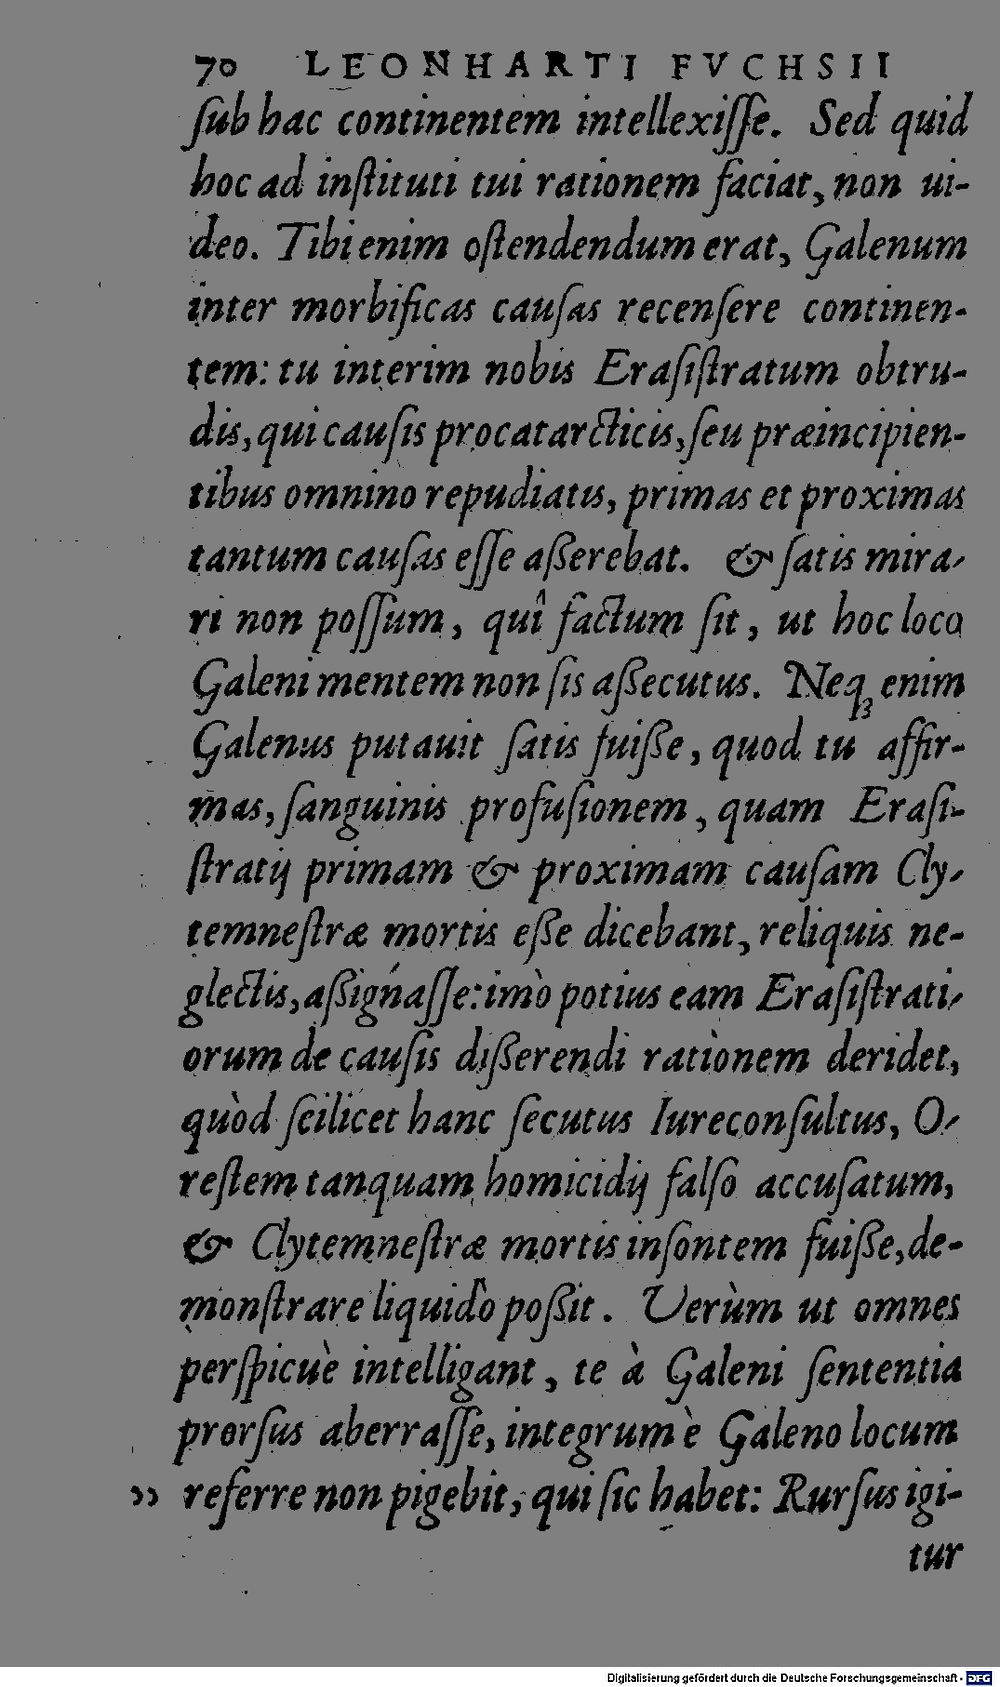 70 LEONHARTI FVCHSII
ſub hac continentem intellexiſſe. Sed quid
hoc ad inſtituti tui rationem faciat, non ui-
deo. Tibi enim oſtendendum erat, Galenum
inter morbificas cauſas recenſere continen-
tem: tu interim nobis Eraſiſtratum obtru-
dis, qui cauſis procatarcticis, ſeu præincipien-
tibus omnino repudiatis, primas et proximas
tantum cauſas eſſe aßerebat. & ſatis mira-
ri non poſſum, quî factum ſit, ut hoc loco
Galeni mentem non ſis aßecutus. Neqꝫ enim
Galenus putauit ſatis fuiße, quod tu affir-
mas, ſanguinis profuſionem, quam Eraſi-
ſtratij primam & proximam cauſam Cly-
temneſtræ mortis eße dicebant, reliquis ne-
glectis, aßignaſſe: imò potius eam Eraſiſtrati-
orum de cauſis dißerendi rationem deridet,
quòd ſcilicet hanc ſecutus Iureconſultus, O-
reſtem tanquam homicidij falſo accuſatum,
& Clytemneſtræ mortis inſontem fuiße, de-
monſtrare liquidò poßit. Verùm ut omnes
perſpicuè intelligant, te à Galeni ſententia
prorſus aberraſſe, integrum è Galeno locum
›› referre non pigebit, qui ſic habet: Rurſus igi-
tur
Digitalisierung gefördert durch die Deutsche Forschungsgemeinschaft - DFG